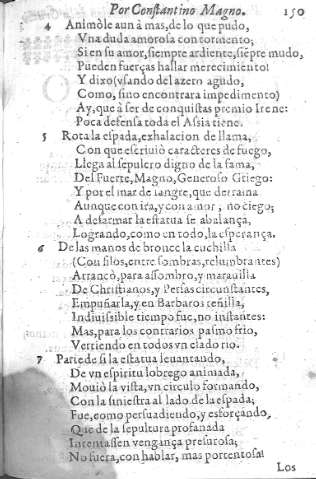 Por Constantino Magno. 150
4 Animòle aun à mas, de lo que pudo,
Vna duda amorosa con tormento;
Si en su amor, siempre ardiente, siẽpre mudo,
Pueden fuerças hallar merecimiento!
Y dixo (vsando del azero agudo,
Como, si no encontrara impedimento)
Ay, que à ser de conquistas premio Irene:
Poca defensa toda el Assia tiene.
5 Rota la espada, exhalacion de llama,
Con que escriuiò caracteres de fuego,
Llega al sepulcro digno de la fama,
Del Fuerte, Magno, Generoso Griego:
Y por el mar de sangre, que derrama
Aunque con ira, y con amor, no ciego;
A desarmar la estatua se abalança,
Logrando, como en todo, la esperança.
6 De las manos de bronce la cuchilla
(Con filos, entre sombras, relumbrantes)
Arrancò, para assombro, y marauilla
De Christianos, y Persas circunstantes,
Empuñarla, y en Barbaros teñilla,
Indiuissible tiempo fue, no instantes:
Mas, para los contrarios pasmo frio,
Vertiendo en todos vn elado rio.
7 Parte de si la estatua leuantando,
De vn espiritu lobrego animada,
Mouiò la vista, vn circulo formando,
Con la siniestra al lado de la espada;
Fue, como persuadiendo, y esforçando,
Que de la sepultura profanada
Intentassen vengança presurosa;
No fuera, con hablar, mas portentosa!
Los